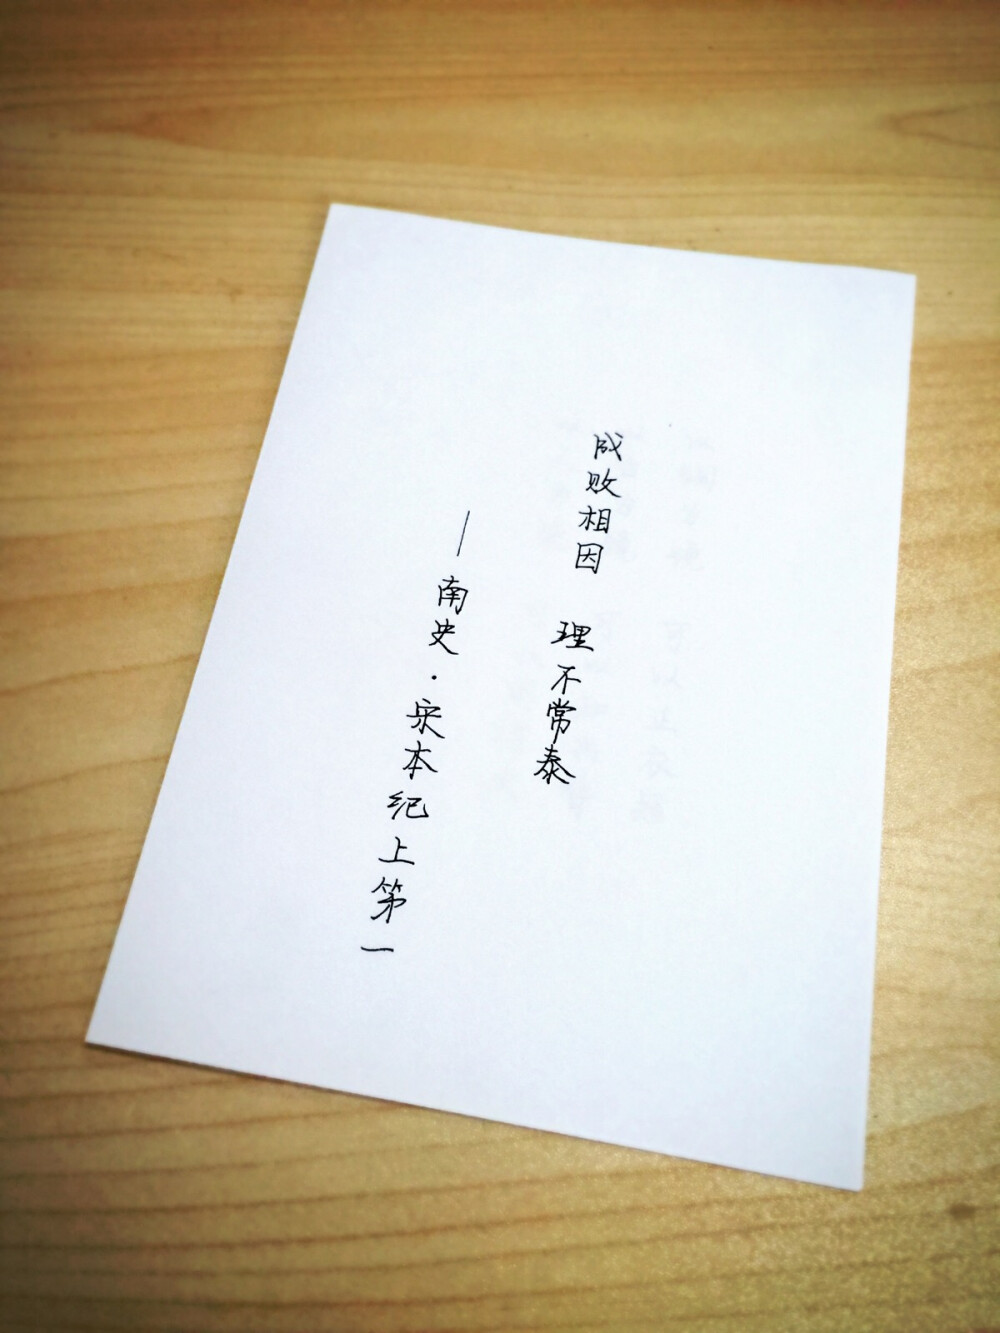 成败相因 理不常泰
——南史·宋本纪上第一